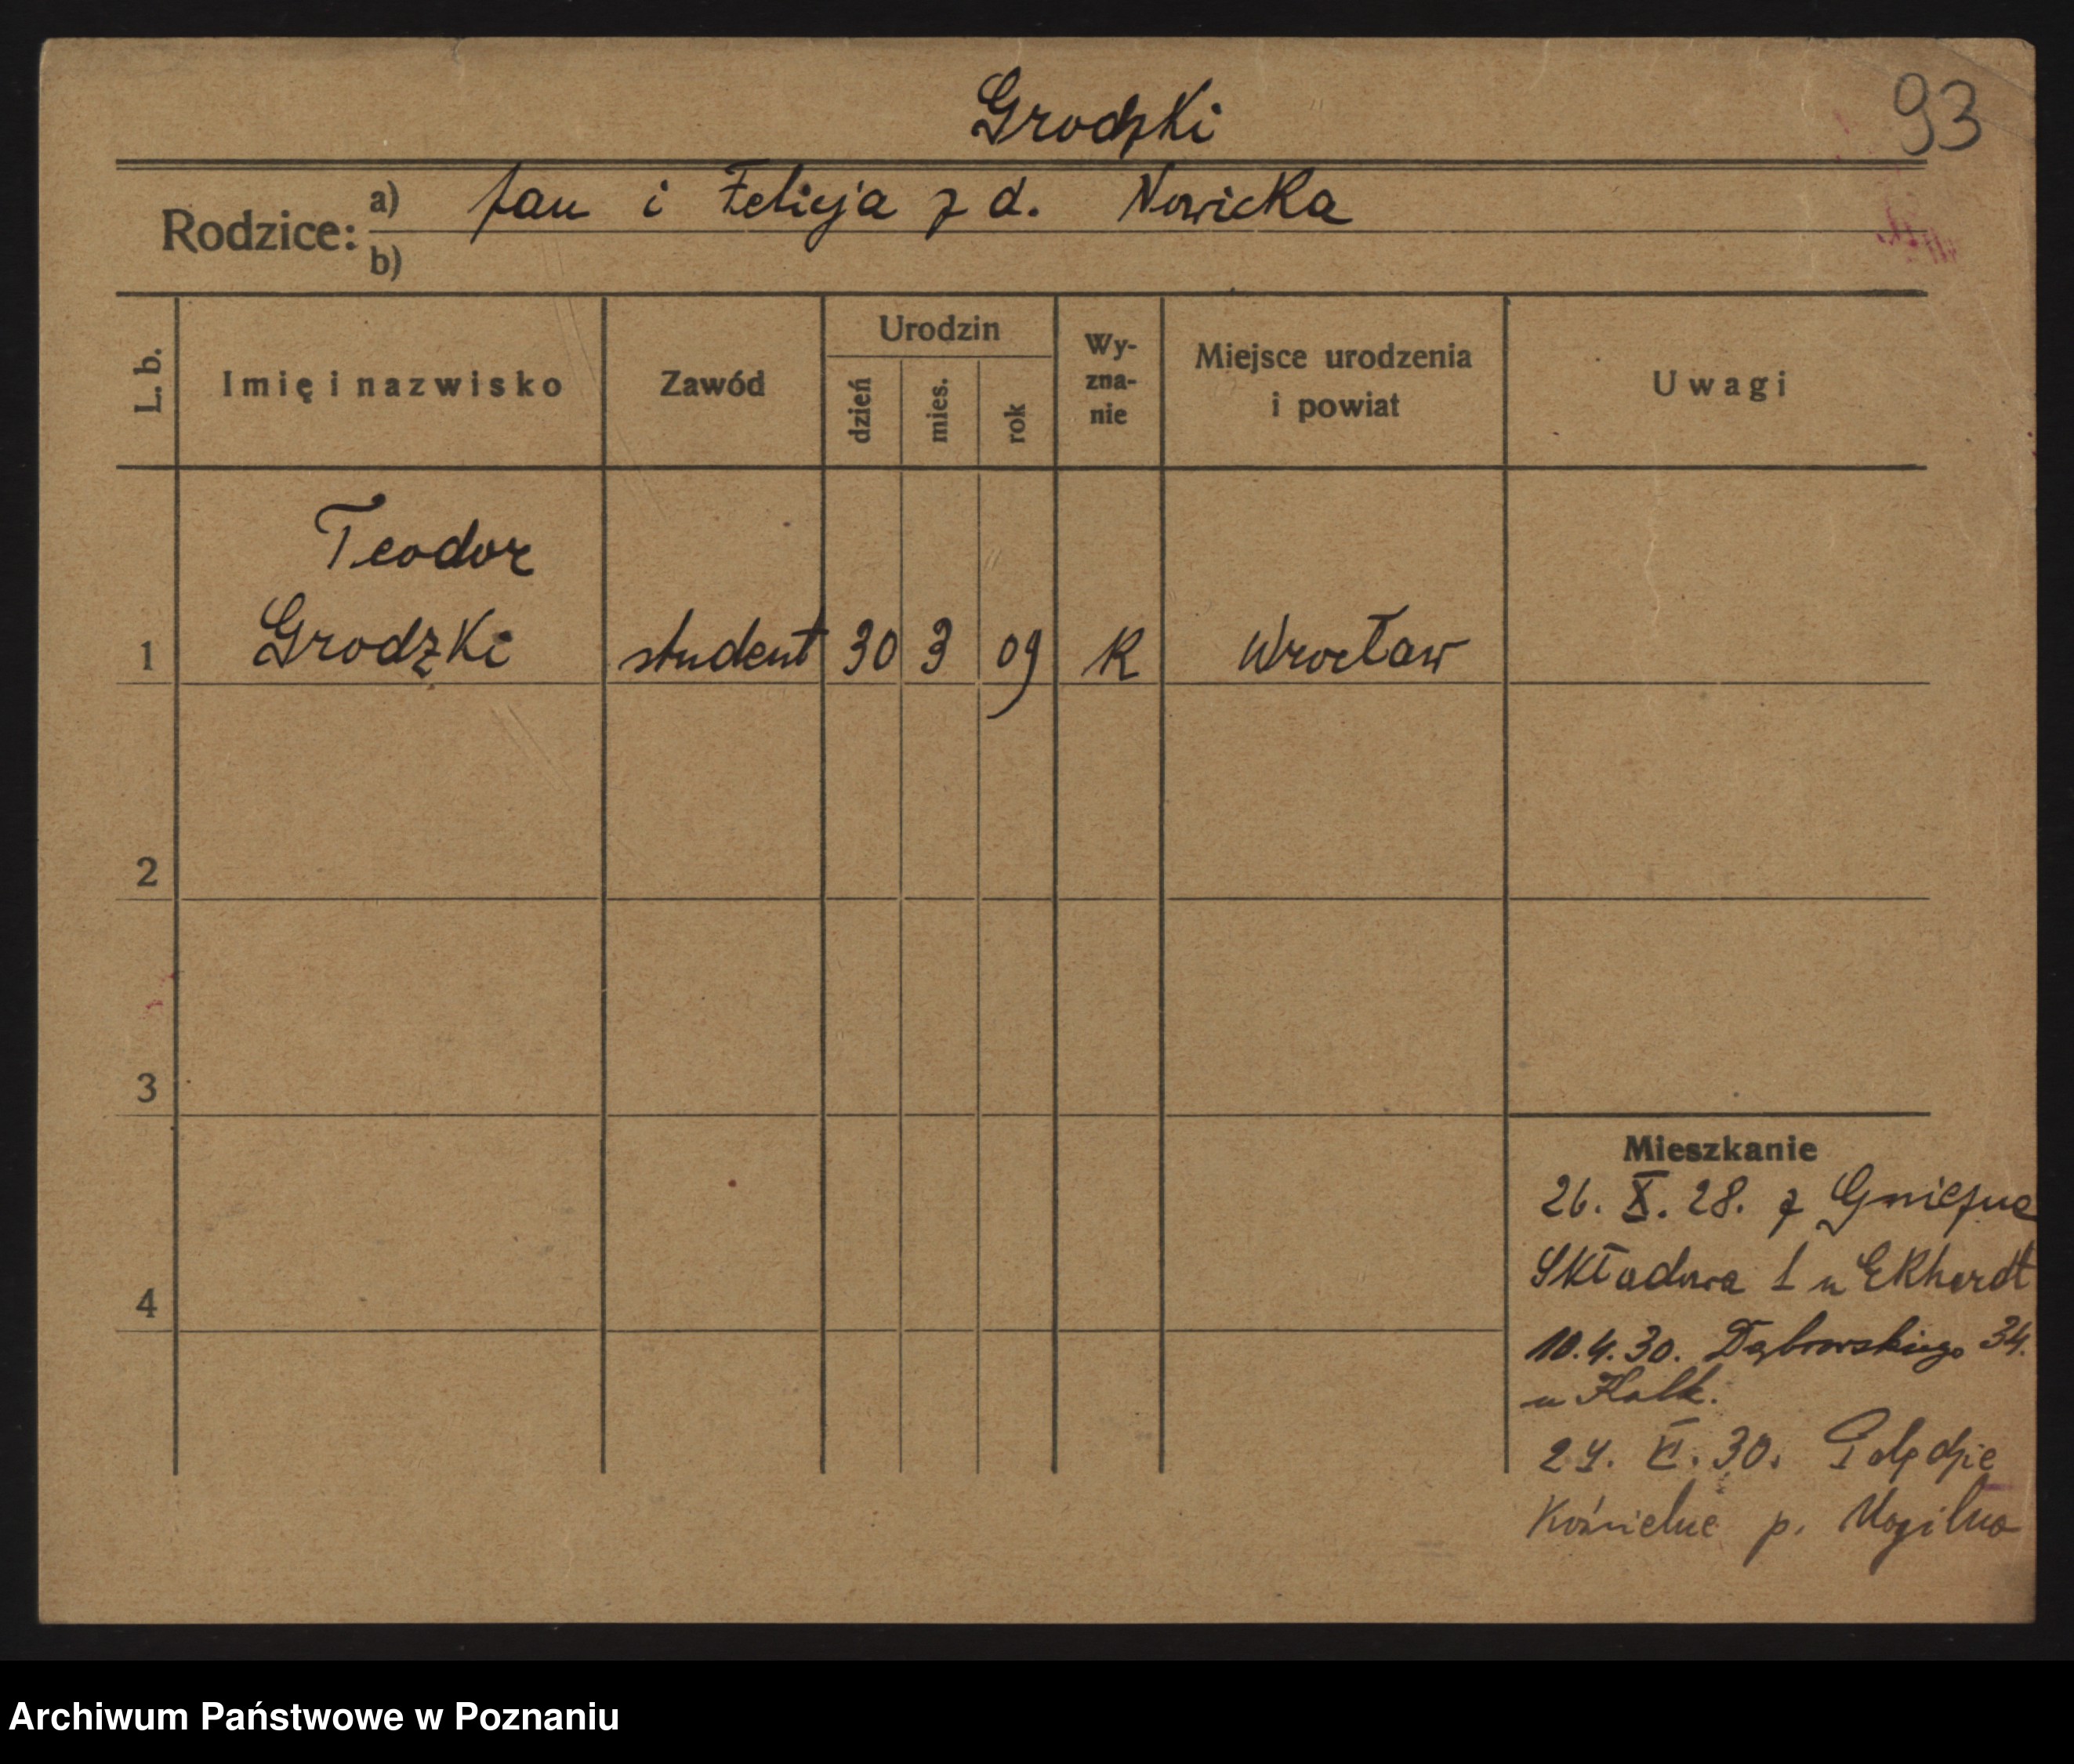 Grodzki
93
Rodzice: a) Jan i Felicja z d. Nowicka
b)
L. b.
Imię i nazwisko
Zawód
Urodzin
dzień
mies.
rok
Wy-
zna-
nie
Miejsce urodzenia
i powiat
Uwagi
Teodor
1 Grodzki student 30 3 09 K Wrocław
2
3
4
Mieszkanie
26. X. 28. z Gniezna
Składowa 1 u Ekhardt
10.4.30. Dąbrowskiego 34.
u Kalk.
24. VI. 30. Gołędzie
Kościelne p. Mogilno
Archiwum Państwowe w Poznaniu